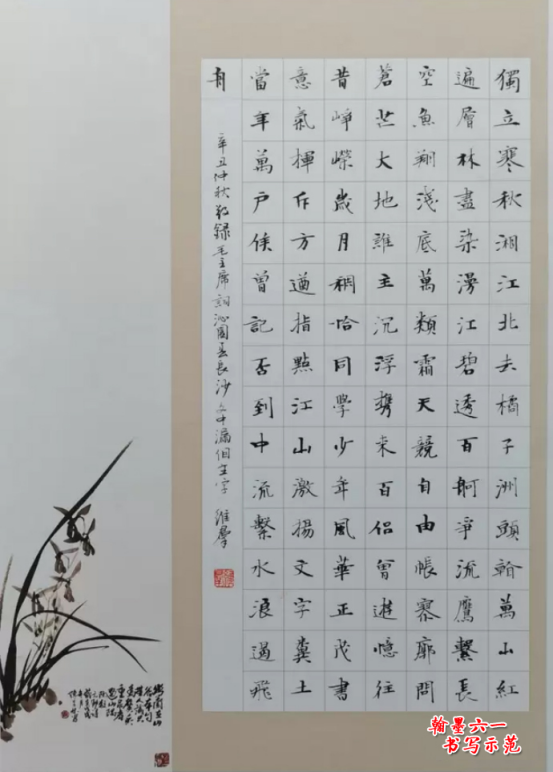 獨立寒秋湘江北去橘子洲頭翰萬山紅
遍層林盡染漫江碧透百舸爭流鷹繫長
空魚翔淺底萬類霜天競自由帳寥廓問
蒼茫大地誰主沉浮攜來百侣曾遊憶往
昔崢嶸歲月稠恰同學少年風華正茂書
意氣揮斥方遒指點江山激揚文字糞土
當年萬戶侯曾記否到中流繫水浪遏飛
舟
辛丑仲秋敬録毛主席詞沁園春長沙 文中漏個生字
翰墨六一
书写示范